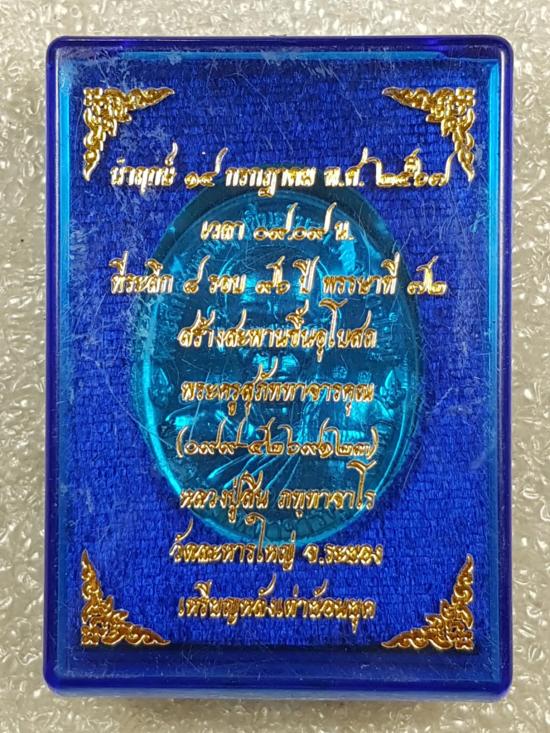 นำฤกษ์ ๑๘ กรกฎาคม พ.ศ. ๒๕๖๗
เวลา ๐๙.๐๙ น.
ที่ระลึก ๘ รอบ ๙๖ ปี พรรษาที่ ๗๒
สร้างสะพานขึ้นอุโบสถ
พระครูสุภัททาจารคุณ
(๐๙๙-๔๒๖๙๑๒๓)
หลวงปู่สิน ภทฺทาจาโร
วัดละหารใหญ่ จ.ระยอง
เหรียญหลังเต่าย้อนยุค